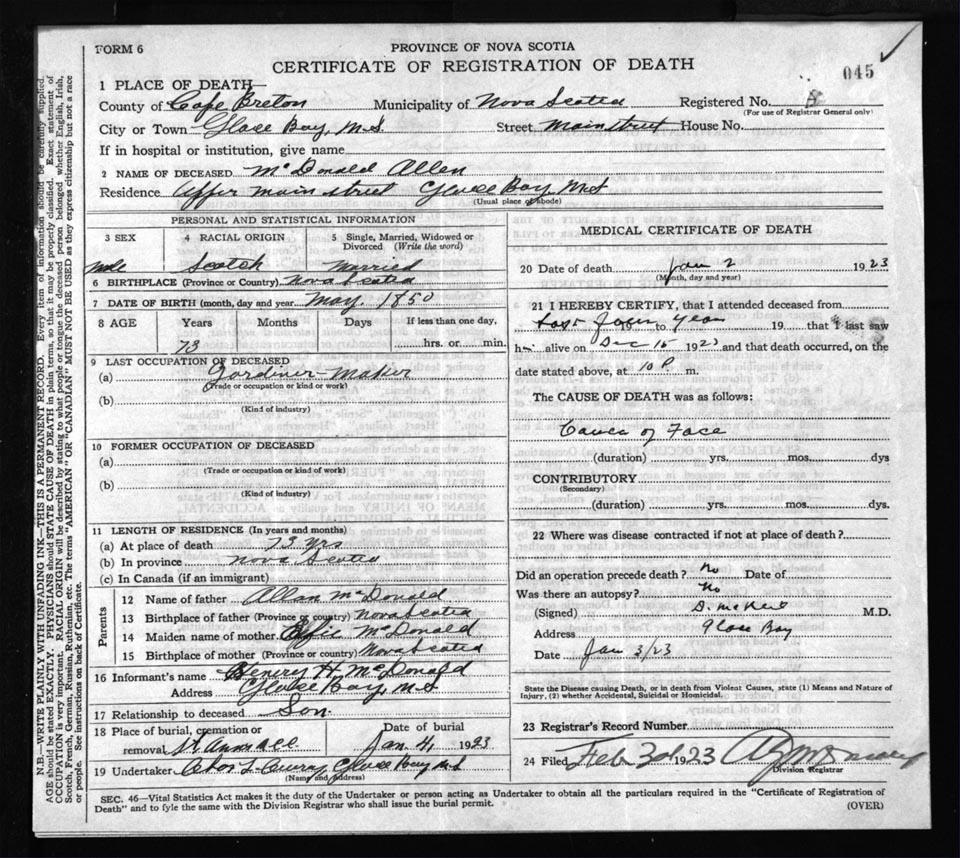 FORM 6
PROVINCE OF NOVA SCOTIA
CERTIFICATE OF REGISTRATION OF DEATH
045
1 PLACE OF DEATH—
County of Cape Breton Municipality of Nova Scotia Registered No.
(For use of Registrar General only)
City or Town Glace Bay, N.S. Street Main street House No.
If in hospital or institution, give name
2 NAME OF DECEASED McDonald Allen
Residence Upper main street Glace Bay N.S
(Usual place of abode)
PERSONAL AND STATISTICAL INFORMATION
3 SEX 4 RACIAL ORIGIN 5 Single, Married, Widowed or Divorced (Write the word)
male Scotch Married
6 BIRTHPLACE (Province or Country) Nova Scotia
7 DATE OF BIRTH (month, day and year May, 1850
8 AGE Years Months Days If less than one day,
73 hrs. or min.
9 LAST OCCUPATION OF DECEASED
(a)
(Trade or occupation or kind or work)
(b)
(Kind of industry)
10 FORMER OCCUPATION OF DECEASED
(a)
(Trade or occupation or kind of work)
(b)
(Kind of industry)
11 LENGTH OF RESIDENCE (In years and months)
(a) At place of death 73 yrs
(b) In province Nova Scotia
(c) In Canada (if an immigrant)
Parents
12 Name of father Allan McDonald
13 Birthplace of father (Province or country) Nova Scotia
14 Maiden name of mother McDonald
15 Birthplace of mother (Province or country) Nova Scotia
16 Informant's name Henry H. McDonald
Address Glace Bay, N.S
17 Relationship to deceased Son
18 Place of burial, cremation or removal Date of burial
Jan 4, 1923
19 Undertaker Chas L Curry Glace Bay N.S
(Name and address)
MEDICAL CERTIFICATE OF DEATH
20 Date of death Jan 2 1923
(Month, day and year)
21 I HEREBY CERTIFY, that I attended deceased from
last four to year 19 that I last saw
h alive on Dec 15 192 and that death occurred, on the
date stated above, at 10 P m.
The CAUSE OF DEATH was as follows:
Cancer of Face
(duration) yrs. mos. dys
CONTRIBUTORY
(Secondary)
(duration) yrs. mos. dys.
22 Where was disease contracted if not at place of death?
Did an operation precede death? No Date of
Was there an autopsy? No
(Signed) M.D.
Address Glace Bay
Date Jan 3/23
State the Disease causing Death, or in death from Violent Causes, state (1) Means and Nature of Injury, (2) whether Accidental, Suicidal or Homicidal.
23 Registrar's Record Number
24 Filed Feb 3d 1923
Division Registrar
SEC. 46—Vital Statistics Act makes it the duty of the Undertaker or person acting as Undertaker to obtain all the particulars required in the "Certificate of Registration of
Death" and to fyle the same with the Division Registrar who shall issue the burial permit.
(OVER)
N.B.—WRITE PLAINLY WITH UNFADING INK—THIS IS A PERMANENT RECORD. Every item of information should be carefully supplied.
AGE should be stated EXACTLY. PHYSICIANS should STATE CAUSE OF DEATH in plain terms, so that it may be properly classified. Exact statement of
OCCUPATION is very important. RACIAL ORIGIN will be described by stating to what people or tongue the deceased person belonged whether English, Irish,
Scotch, French, German, Russian, Ruthenian, etc. The terms "AMERICAN" OR "CANADIAN" MUST NOT BE USED as they express citizenship but not a race
or people. See instructions on back of Certificate.